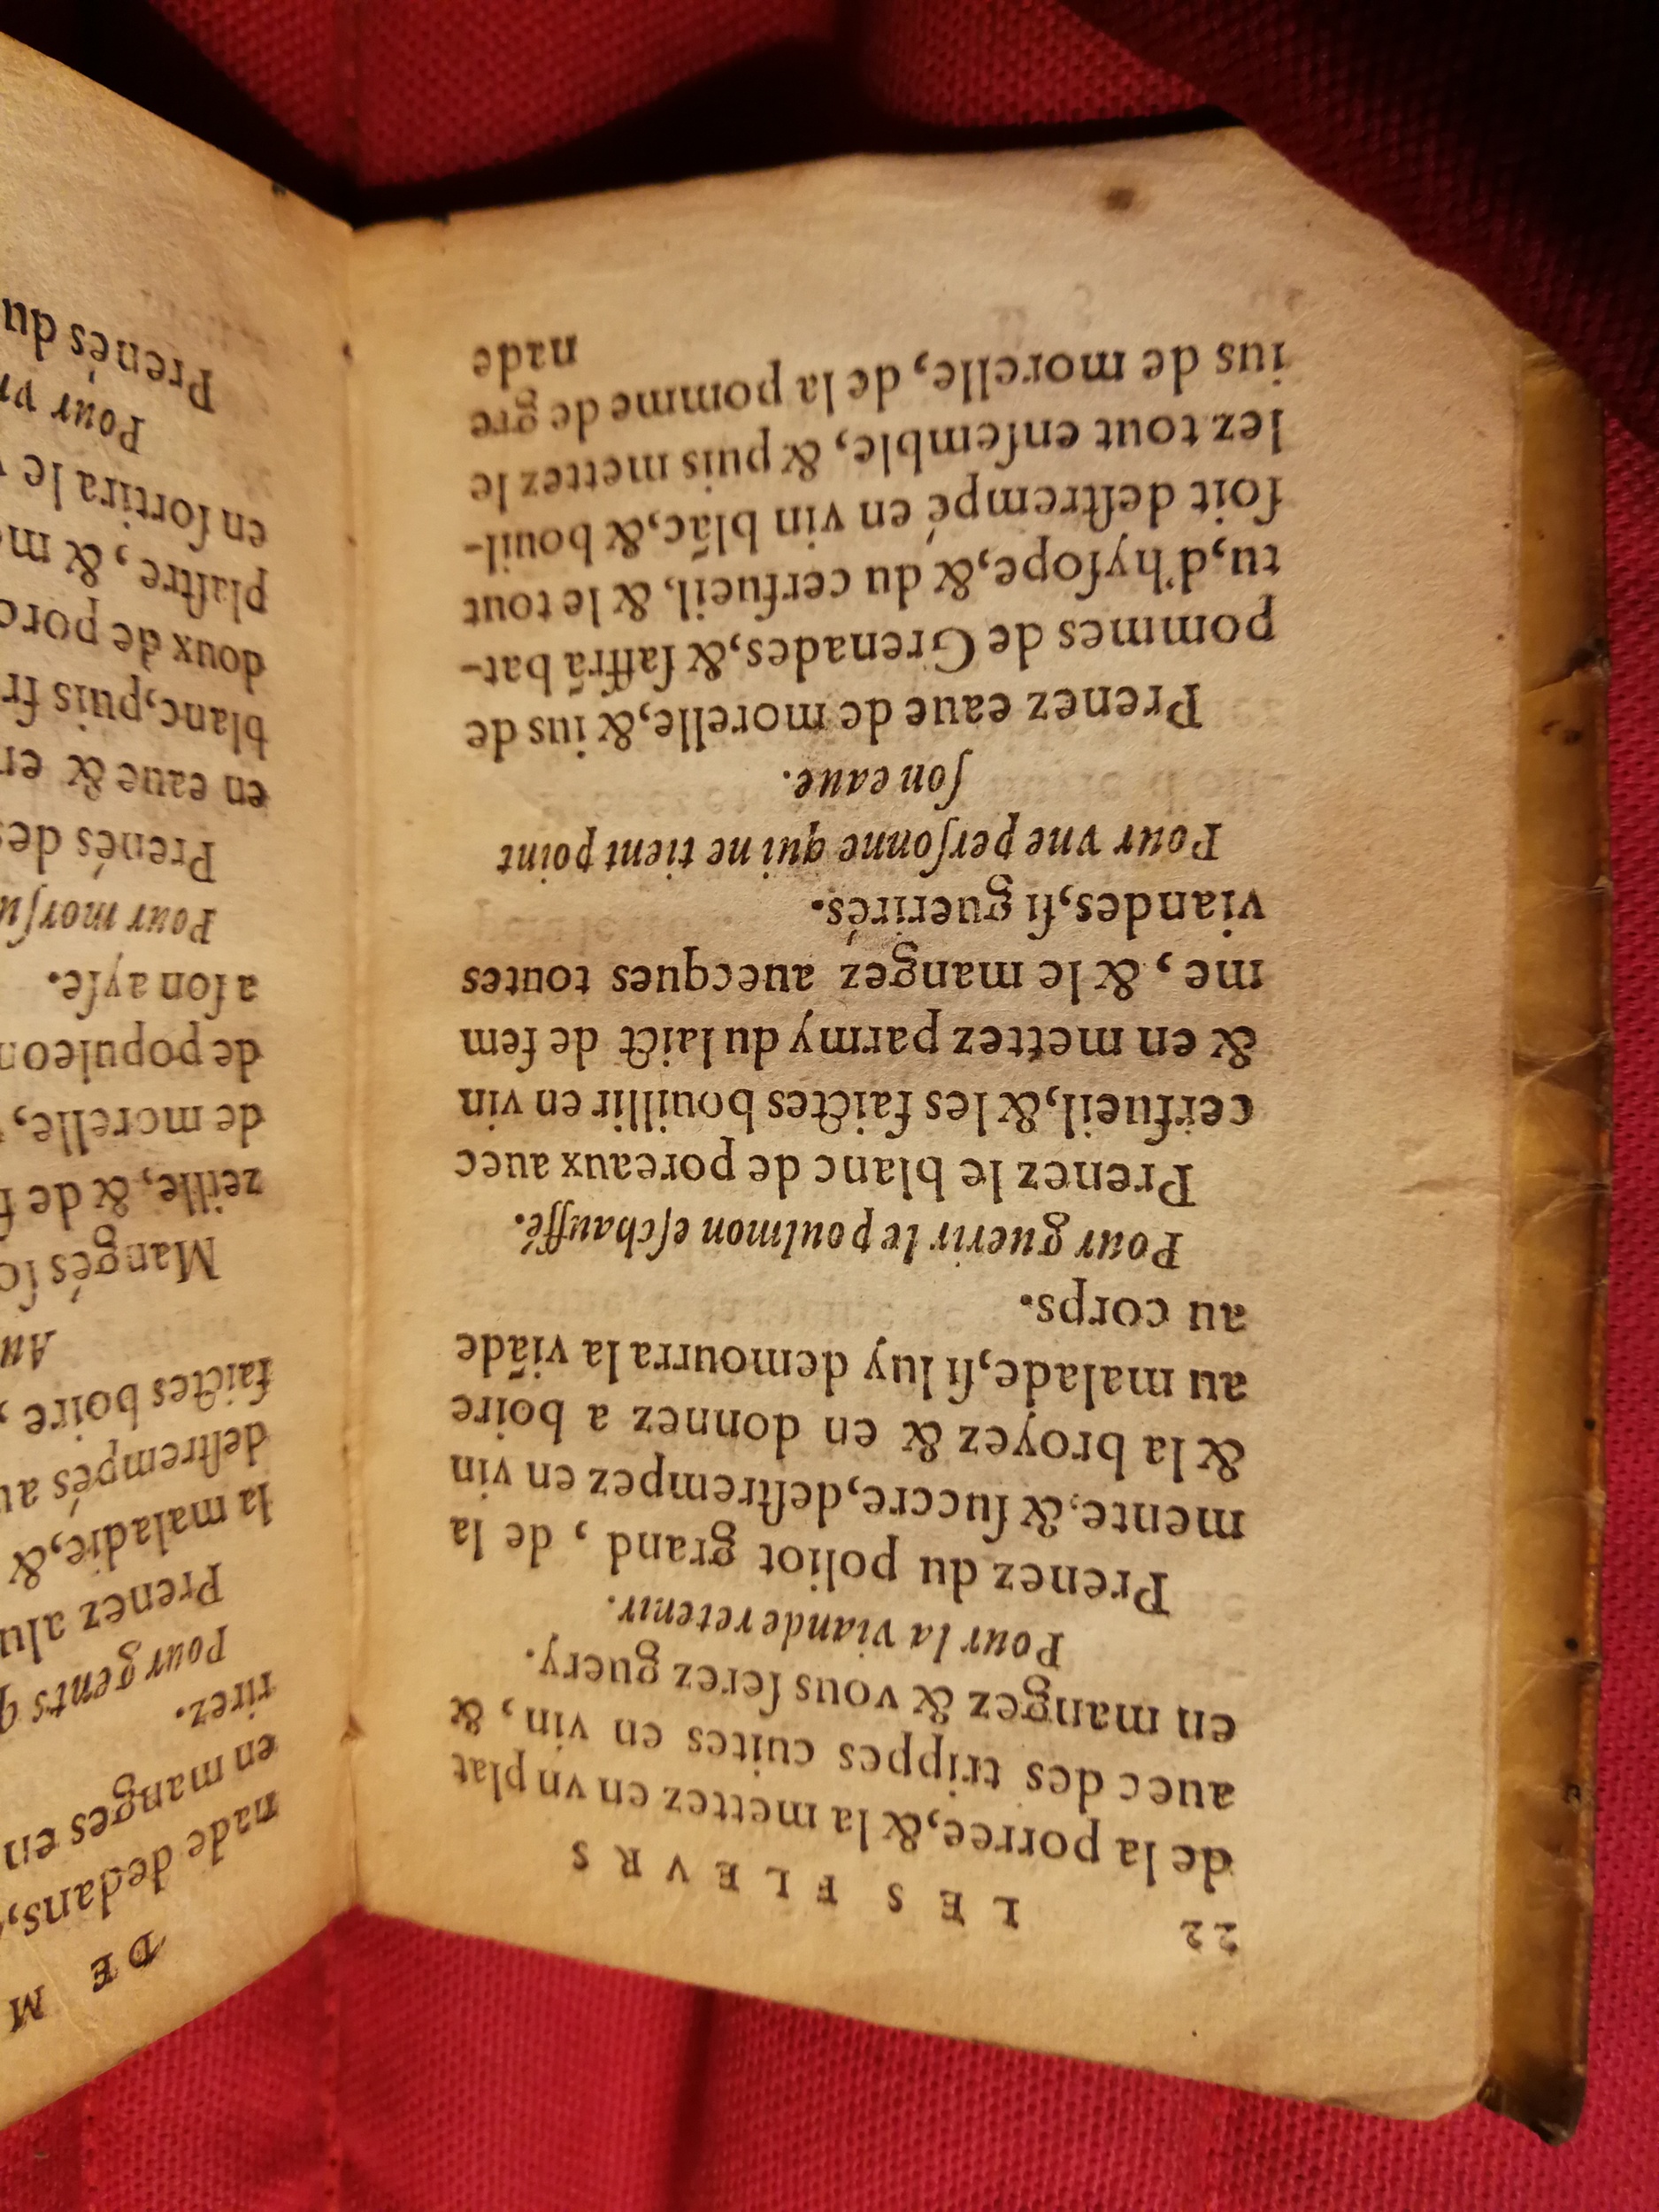 22 LES FLEVRS
de la porree,& la mettez en vn plat
auec des trippes cuites en vin, &
en mangez & vous ſerez guery.
Pour la viande retenir.
Prenez du poliot grand, de la
mente,& ſuccre,deſtrempez en vin
& la broyez & en donnez a boire
au malade,ſi luy demourra la viãde
au corps.
Pour guerir le poulmon eſchauffé.
Prenez le blanc de poreaux auec
cerfueil,& les faictes bouillir en vin
& en mettez parmy du laict de fem
me, & le mangez auecques toutes
viandes,ſi guerirés.
Pour vne perſonne qui ne tient point
ſon eaue.
Prenez eaue de morelle,& ius de
pommes de Grenades,& ſaffrã bat-
tu,d'hyſope,& du cerfueil, & le tout
ſoit deſtrempé en vin blãc,& bouil-
lez tout enſemble, & puis mettez le
ius de morelle, de la pomme de gre
nade
DE M
nade dedans,
en manges en
rirez.
Pour gents q
Prenez alu
la maladie,&
deſtrempés au
faictes boire,
Au
Mangés ſo
zeille, & de f
de morelle,
de populeon
a ſon ayſe.
Pour morſu
Prenés des
en eaue & en
blanc,puis fr
doux de porc
plaſtre, & me
en ſortira le
Pour vn
Prenés du